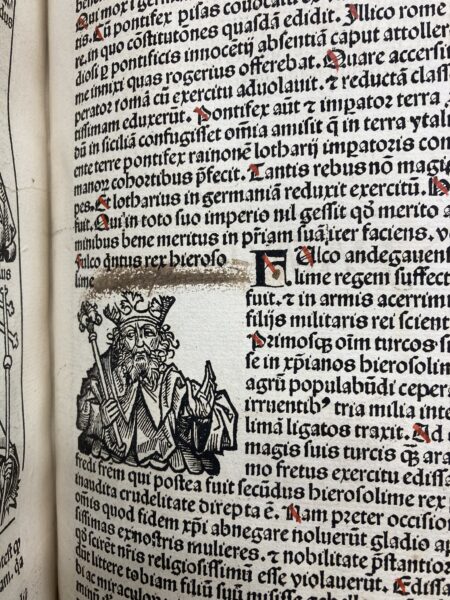 Qui mox
tis. Cū pontifex pisas
re, in quo costitutōnes quasdam edidit. Illico rome
diosi pr̄ pontificis innocētij absentiā caput attoller
me innixi quas rogerius offerebat. Quare accersi
perator romā cū exercitu aduolauit. ⁊ reductam classe
tissimam eduxerunt. Pontifex aūt ⁊ imꝑator terra
dū in siciliā confugisset omīa amisit q̄ in terra ytali
ente terre pontifex rainonē lotharij imꝑatoris com
manoꝝ cohortibus p̄fecit. Tantis rebus nō magis
pes. ⁊ lotharius in germaniā reduxit exercitū. P
fuit. Qui in toto suo imperio nil gessit qd̓ merito a
minibus bene meritus in pr̄iam suā iter faciens. v
Fulco q̄ntus rex hieroso
lime
Fulco andegauens
lime regem suffect
fuit. ⁊ in armis acerrimu
filijs militaris rei scient
Primosq̨ oīm turcos s
se in xp̄ianos hierosolim
agrū populabūdi cepera
irruentib᾽ tria milia inte
limā ligatos traxit. Ad
magis suis turcis q̄ꝫ ara
mo fretus exercitu edissa
fredi frēm qui postea fuit secūdus hierosolime rex
inaudita crudelitate direpta ē. Nam preter occisio
omīs quod fidem xp̄i abnegare noluerūt gladio a
sissimas ex nostris mulieres. ⁊ nobilitate p̄stantior
qd̓ scirēt nr̄is religiosissimū esse violauerut. Ed
dūt littere tobiam filiū suū misisse
bi ac miraculoꝝ